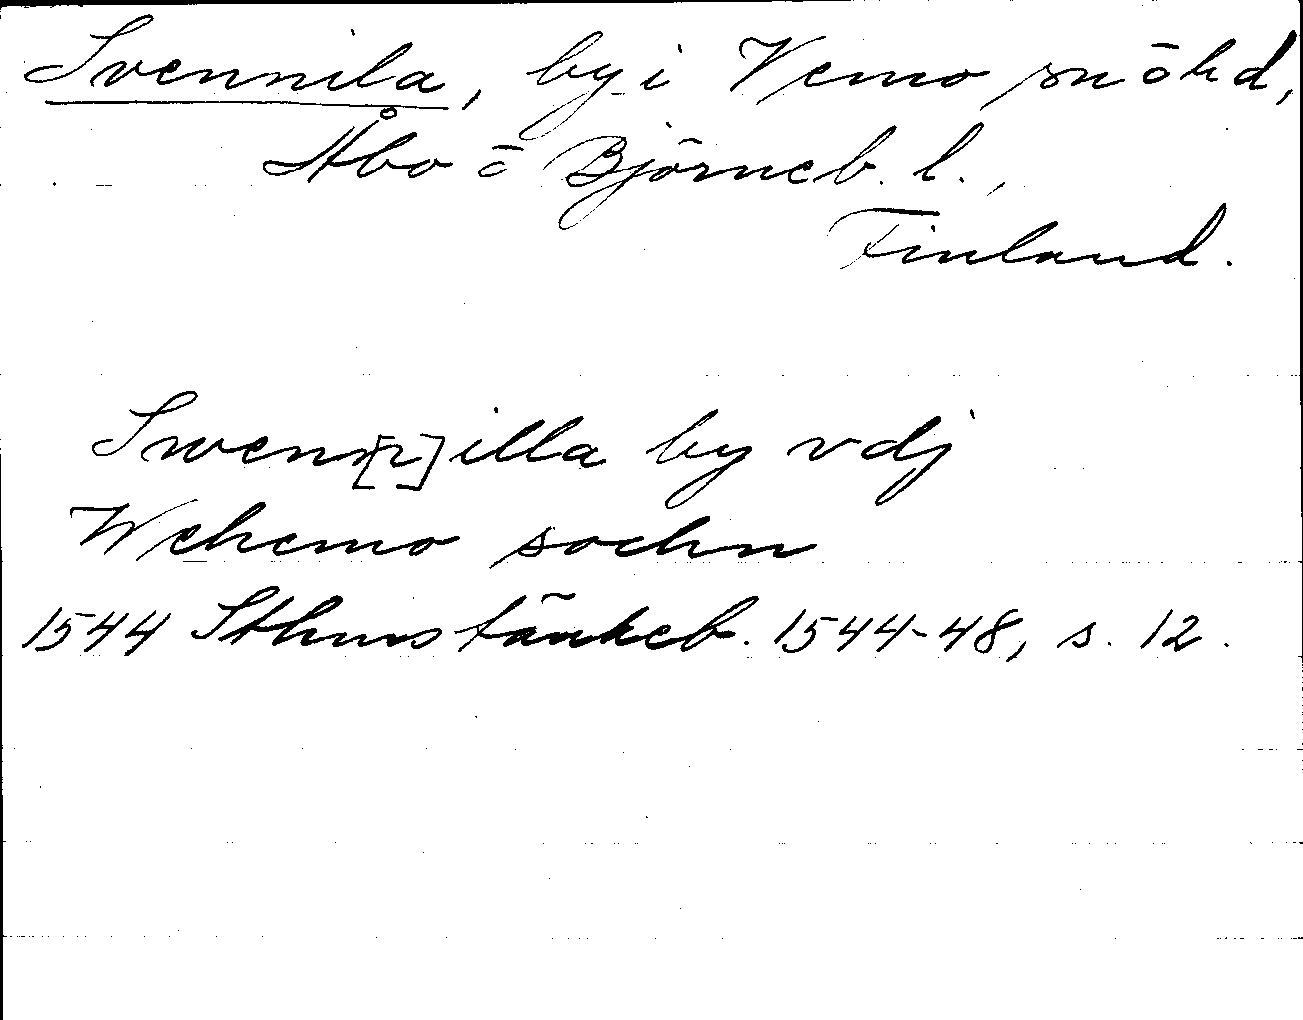 Svennila, by i Vemo sn ō hd,
Åbo ō Björneb. l.,
Finland.
Swen[n]illa by vdj
Wehemo sochn
1544 Sthms tänkeb. 1544-48, s. 12.